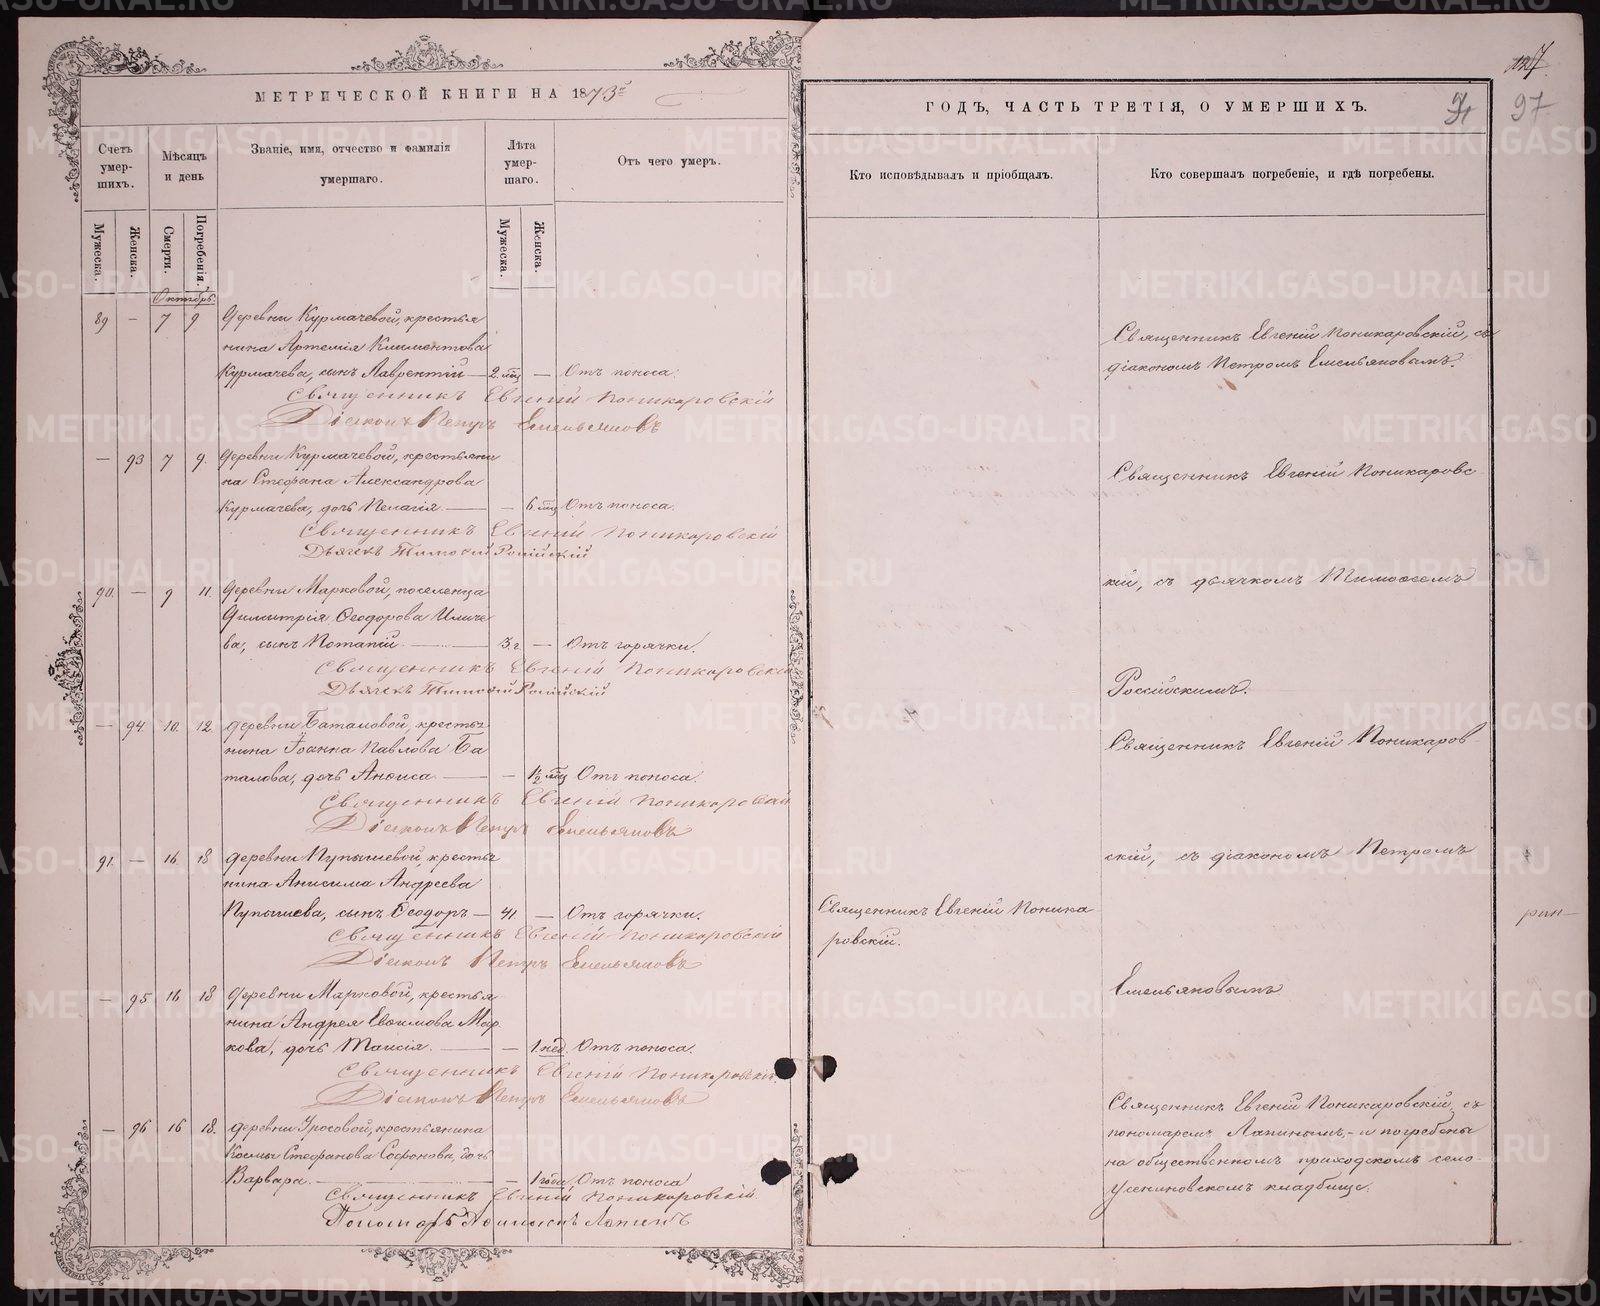 МЕТРИЧЕСКОЙ КНИГИ НА 1873й
Счетъ умер-шихъ.
Мѣсяцъ и день
Званіе, имя, отчество и фамилія умершаго.
Лѣта умер-шаго.
Отъ чего умеръ.
Мужеска.
Женска.
Смерти.
Погребенія.
Мужеска.
Женска.
Октябрь.
89 – 7 9 Деревни Курмачевой, крестья
нина Артемія Климентова
Курмачева, сынъ Лаврентій – 2 мѣц – Отъ поноса.
Священникъ Евгеній Поникаровскій
Діаконъ Петръ Емельяновъ
– 93 7 9. Деревни Курмачевой, крестьяни
на Стефана Александрова
Курмачева, дочь Пелагія. – – 6 мѣц Отъ поноса.
Священникъ Евгеній Поникаровскій
Дьячекъ Тимоѳей Россійскій
90. – 9 11. Деревни Марковой, поселенца
Димитрія Ѳеодорова Иличе
ва, сынъ Потапій – 3 г. – Отъ горячки.
Священникъ Евгеній Поникаровскій
Дьячекъ Тимоѳей Россійскій
– 94. 10. 12. деревни Баталовой, крестья
нина Іоанна Павлова Ба
талова, дочь Анѳиса. – – 1½ мѣц Отъ поноса.
Священникъ Евгеній Поникаровскій
Діаконъ Петръ Емельяновъ
91. – 16 18 деревни Пупышевой, крестья
нина Анисима Андреева
Пупышева, сынъ Ѳеодоръ – 41. – Отъ горячки.
Священникъ Евгеній Поникаровскій
Діаконъ Петръ Емельяновъ
– 95 16 18 Деревни Марковой, крестья
нина Андрея Евѳимова Мар
кова, дочь Таисія. – – 1. нед. Отъ поноса.
Священникъ Евгеній Поникаровскій.
Діаконъ Петръ Емельяновъ
– 96 16 18. деревни Уросовой, крестьянина
Космы Стефанова Софронова, дочь
Варвара. – – 1 года Отъ поноса
Священникъ Евгеній Поникаровскій
Пономарь Лапинъ
97
ГОДЪ, ЧАСТЬ ТРЕТІЯ, О УМЕРШИХЪ.
Кто исповѣдывалъ и пріобщалъ.
Кто совершалъ погребеніе, и гдѣ погребены.
Священникъ Евгеній Поникаровскій, съ
діакономъ Петромъ Емельяновымъ.
Священникъ Евгеній Поникаровс
кій, съ дьячкомъ Тимоѳеемъ
Россійскимъ.
Священникъ Евгеній Поникаров
скій, съ діакономъ Петромъ
Священникъ Евгеній Поника
ровскій.
Емельяновымъ
Священникъ Евгеній Поникаровскій, съ
пономаремъ Лапинымъ, – и погребены
на общественномъ приходскомъ село-
Усениновскомъ кладбище.
METRIKI.GASO-URAL.RU